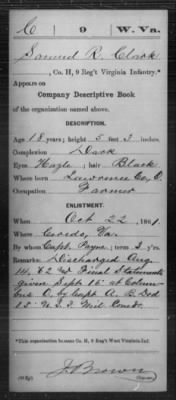 C | 9 | W. Va.
Samuel R. Clark
, Co. H, 9 Reg't Virginia Infantry.*
Appears on
Company Descriptive Book
of the organization named above.
DESCRIPTION.
Age 18 years; height 5 feet 3 inches.
Complexion Dark
Eyes Hazle ; hair Black
Where born Lawrence Co, O.
Occupation Farmer
ENLISTMENT.
When Oct 22 , 1861.
Where Ceredo, Va.
By whom Capt. Payne ; term 3 y'rs.
Remarks: Discharged Aug
14, 62 Final Statements
given Sept 15 at Colum-
bus O, by Capt A. B. Dod
15" U.S. Mil Comdr.
* This organization subsequently became Co. H, 9 Reg't West Virginia Inf.
J Brown
Copyist.